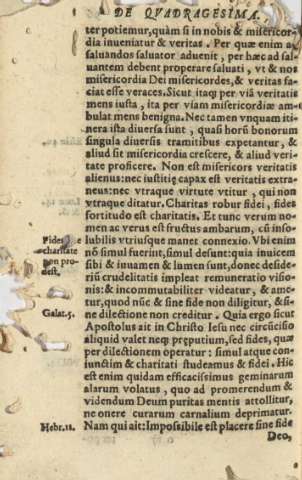 DE QVADRAGESIMA.
ter potiemur, quàm si in nobis & misericor-
dia inueniatur & veritas. Per quæ enim ad
saluandos saluator aduenit, per hæc ad sal-
uantem debent properare saluati, vt & nos
misericordia Dei misericordes, & veritas fa-
ciat esse veraces. Sicut itaq; per viã veritatis
mens iusta, ita per viam misericordiæ am-
bulat mens benigna. Nec tamen vnquam iti-
nera ista diuersa sunt, quasi horũ bonorum
singula diuersis tramitibus expetantur, &
aliud sit misericordia crescere, & aliud veri-
tate proficere. Non est misericors veritatis
alienus: nec iustitię capax est veritatis extra-
neus: nec vtraque virtute vtitur, qui non
vtraque ditatur. Charitas robur fidei, fides
fortitudo est charitatis. Et tunc verum no-
men ac verus est fructus ambarum, cũ inso-
lubilis vtriusque manet connexio. Vbi enim
nõ simul fuerint, simul desunt: quia inuicem
sibi & iuuamen & lumen sunt, donec deside-
rium crudelitatis impleat remuneratio visio-
nis: & incommutabiliter videatur, & ame-
tur, quod nũc & sine fide non diligitur, & si-
ne dilectione non creditur. Quia ergo sicut
Apostolus ait in Christo Iesu nec circũcisio
aliquid valet neq; pręputium, sed fides, quæ
per dilectionem operatur: simul atque con-
iunctim & charitati studeamus & fidei. Hic
est enim quidam efficacissimus geminarum
alarum volatus, quo ad promerendum &
videndum Deum puritas mentis attollitur,
ne onere curarum carnalium deprimatur.
Nam qui ait: Impossibile est placere sine fide
Deo,
Fides
charitate
non pro-
dest.
Galat. 5.
Hebr. 11.